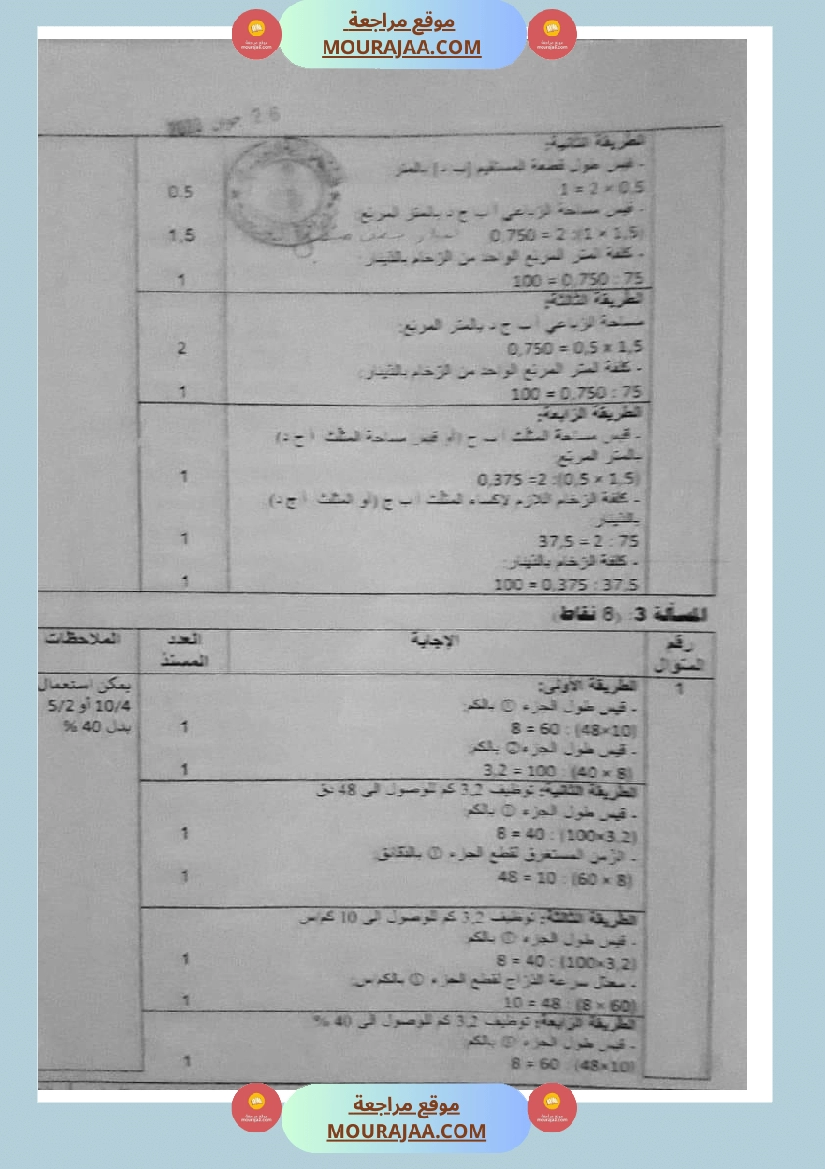 موقع مراجعة
MOURAJAA.COM
26 جوان 2020
الطريقة الثانية:
- قيس طول قطعة المستقيم [ب د] بالمتر
0,5 × 2 = 1
0.5
- قيس مساحة الرباعي أ ب ج د بالمتر المربع:
(1,5 × 1) : 2 = 0,750
1,5
- كلفة المتر المربع الواحد من الرخام بالدينار:
75 : 0,750 = 100
1
الطريقة الثالثة:
مساحة الرباعي أ ب ج د بالمتر المربع:
1,5 x 0,5 = 0,750
2
- كلفة المتر المربع الواحد من الرخام بالدينار:
75 : 0,750 = 100
1
الطريقة الرابعة:
- قيس مساحة المثلث أ ب ج (أو قيس مساحة المثلث أ ج د)
بالمتر المربع:
(1,5 × 0,5) : 2= 0,375
1
- كلفة الرخام اللازم لإكساء المثلث أ ب ج (أو المثلث أ ج د)
بالدينار:
75 : 2 = 37,5
1
- كلفة الرخام بالدينار:
37,5 : 0,375 = 100
1
المسألة 3: (8 نقاط)
رقم السؤال
الإجابة
العدد المسند
الملاحظات
1
الطريقة الأولى:
- قيس طول الجزء ① بالكم:
(48×10) : 60 = 8
1
- قيس طول الجزء ② بالكم:
(8 × 40) : 100 = 3,2
1
يمكن استعمال
10/4 أو 5/2
بدل 40 %
الطريقة الثانية: توظيف 3,2 كم للوصول الى 48 دق
- قيس طول الجزء ① بالكم:
(3,2×100) : 40 = 8
1
- الزمن المستغرق لقطع الجزء ① بالدقائق:
(8 × 60) : 10 = 48
1
الطريقة الثالثة: توظيف 3,2 كم للوصول الى 10 كم/س
- قيس طول الجزء ① بالكم:
(3,2×100) : 40 = 8
1
- معدل سرعة الدراج لقطع الجزء ① بالكم/س:
(60 × 8) : 48 = 10
1
الطريقة الرابعة: توظيف 3,2 كم للوصول الى 40 %
- قيس طول الجزء ① بالكم:
(48×10) : 60 = 8
1
موقع مراجعة
MOURAJAA.COM